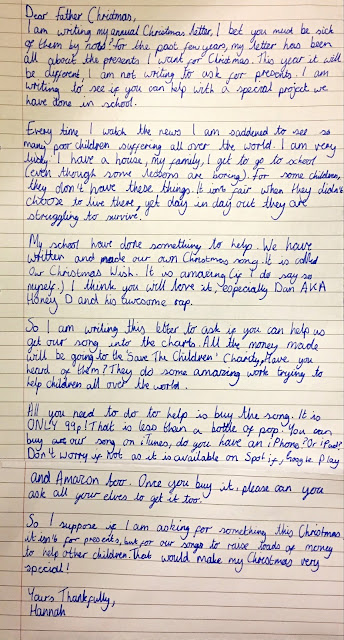 Dear Father Christmas,
I am writing my annual Christmas letter, I bet you must be sick
of them by now? For the past few years, my letter has been
all about the presents I want for Christmas. This year it will
be different, I am not writing to ask for presents. I am
writing to see if you can help with a special project we
have done in school.
Every time I watch the news I am saddened to see so
many poor children suffering all over the world. I am very
lucky. I have a house, my family, I get to go to school
(even though some lessons are boring). For some children,
they don't have these things. It isn't fair when they didn't
choose to live there, yet day in day out they are
struggling to survive.
My school have done something to help. We have
written and made our own Christmas song. It is called
Our Christmas Wish. It is amazing (if I do say so
myself.) I think you will love it, especially Dan AKA
Honey D and his awesome rap.
So I am writing this letter to ask if you can help us
get our song into the charts. All the money made
will be going to the 'Save The Children' Charity, Have you
heard of them? They do some amazing work trying to
help children all over the world.
All you need to do to help is buy the song. It is
ONLY 99p! That is less than a bottle of pop. You can
buy our song on iTunes, do you have an iPhone? Or iPad?
Don't worry if not as it is available on Spotify, Google Play
and Amazon too. Once you buy it, please can you
ask all your elves to get it too.
So I suppose if I am asking for something this Christmas
it isn't for presents, but for our songs to raise loads of money
to help other children. That would make my Christmas very
special!
Yours Thankfully,
Hannah